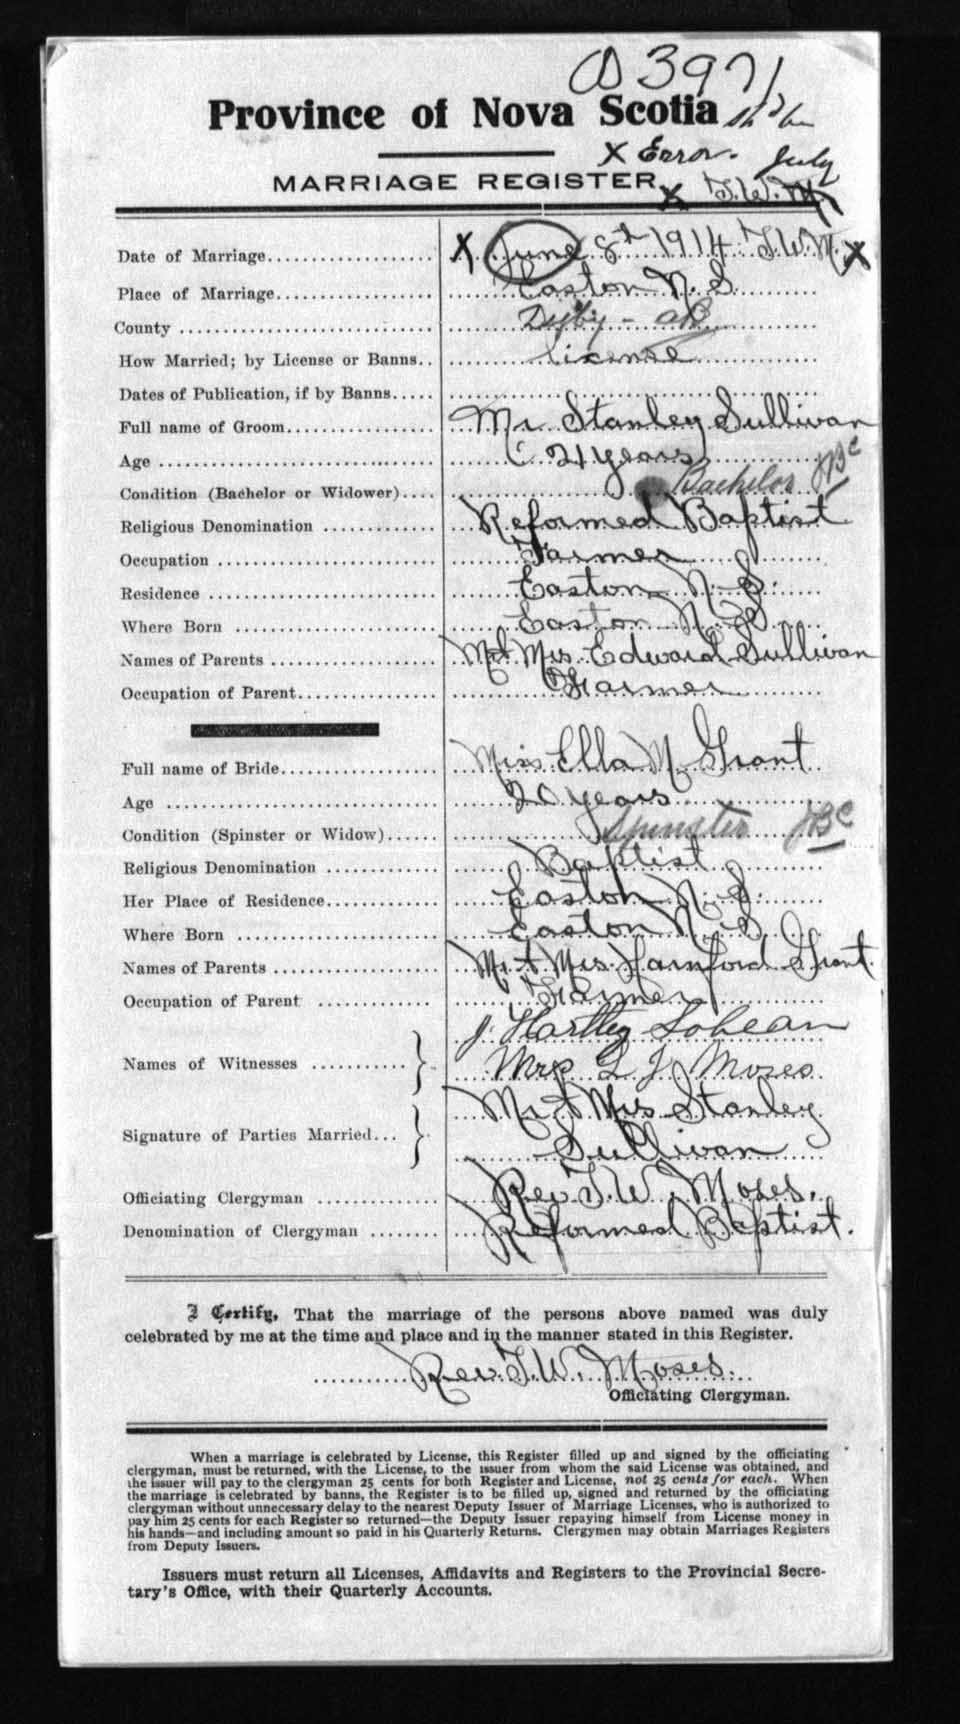 3971
Province of Nova Scotia
X Error. July
MARRIAGE REGISTER X T.W.M.
Date of Marriage X June 8th 1914 T.W.M. X
Place of Marriage Easton N.S.
County Digby -
How Married; by License or Banns license
Dates of Publication, if by Banns
Full name of Groom Mr Stanley Sullivan
Age 21 years
Condition (Bachelor or Widower) Bachelor
Religious Denomination Reformed Baptist
Occupation Farmer
Residence Easton N.S.
Where Born Easton N.S.
Names of Parents Mr & Mrs. Edward Sullivan
Occupation of Parent Farmer
Full name of Bride Miss Ella M. Grant
Age 20 years
Condition (Spinster or Widow) Spinster
Religious Denomination Baptist
Her Place of Residence Easton N.S.
Where Born Easton N.S.
Names of Parents Mr & Mrs Hainford Grant
Occupation of Parent Farmer
J. Hartley
Names of Witnesses
Mrs Moses
Mr & Mrs Stanley
Signature of Parties Married
Sullivan
Officiating Clergyman Rev T.W. Moses.
Denomination of Clergyman Reformed Baptist.
I Certify, That the marriage of the persons above named was duly
celebrated by me at the time and place and in the manner stated in this Register.
Rev. T.W. Moses.
Officiating Clergyman.
When a marriage is celebrated by License, this Register filled up and signed by the officiating
clergyman, must be returned, with the License, to the issuer from whom the said License was obtained, and
the issuer will pay to the clergyman 25 cents for both Register and License, not 25 cents for each. When
the marriage is celebrated by banns, the Register is to be filled up, signed and returned by the officiating
clergyman without unnecessary delay to the nearest Deputy Issuer of Marriage Licenses, who is authorized to
pay him 25 cents for each Register so returned—the Deputy Issuer repaying himself from License money in
his hands—and including amount so paid in his Quarterly Returns. Clergymen may obtain Marriages Registers
from Deputy Issuers.
Issuers must return all Licenses, Affidavits and Registers to the Provincial Secre-
tary's Office, with their Quarterly Accounts.